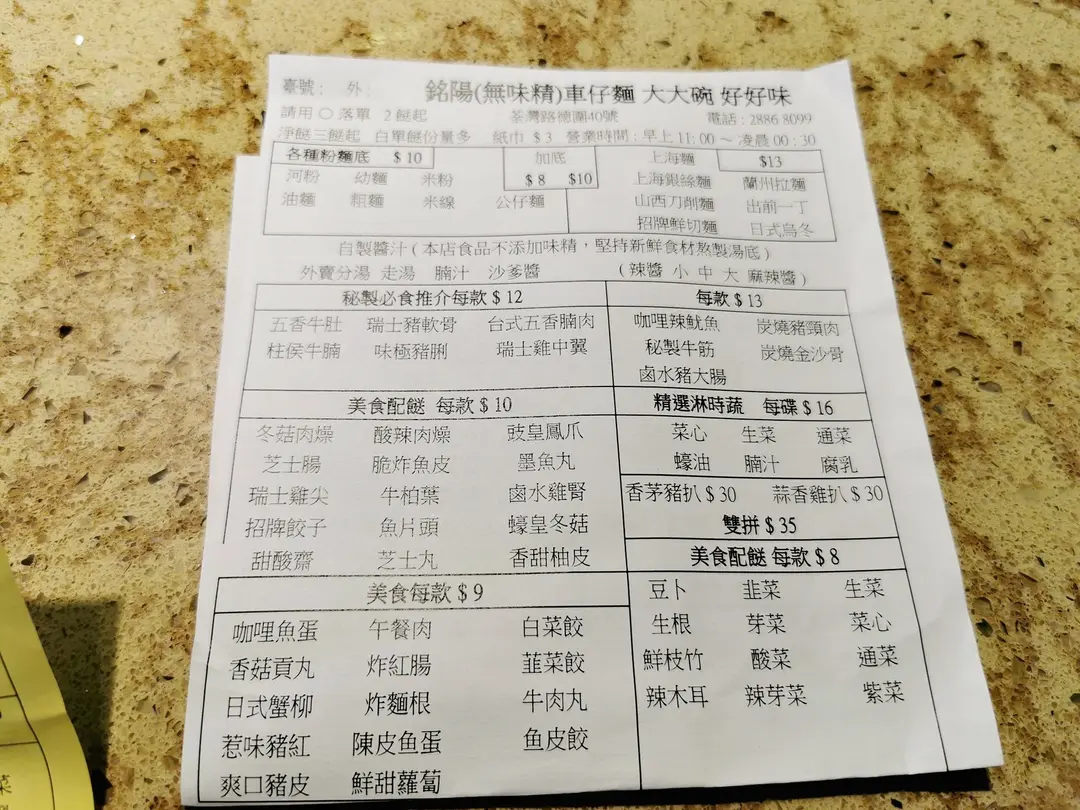 臺號： 外： 銘陽(無味精)車仔麵 大大碗 好好味
請用○落單 2餸起 荃灣路德圍40號 電話：2886 8099
淨餸三餸起 白單餸份量多 紙巾 $3 營業時間：早上11:00～凌晨00:30
各種粉麵底 $10
河粉 幼麵 米粉
油麵 粗麵 米線 公仔麵
加底
$8 $10
上海麵 $13
上海銀絲麵 蘭州拉麵
山西刀削麵 出前一丁
招牌鮮切麵 日式烏冬
自製醬汁(本店食品不添加味精，堅持新鮮食材熬製湯底)
外賣分湯 走湯 腩汁 沙爹醬 (辣醬 小 中 大 麻辣醬)
秘製必食推介每款$12
五香牛肚 瑞士豬軟骨 台式五香腩肉
柱侯牛腩 味極豬脷 瑞士雞中翼
每款$13
咖哩辣魷魚 炭燒豬頸肉
秘製牛筋 炭燒金沙骨
鹵水豬大腸
美食配餸 每款$10
冬菇肉燥 酸辣肉燥 豉皇鳳爪
芝士腸 脆炸魚皮 墨魚丸
瑞士雞尖 牛柏葉 鹵水雞腎
招牌餃子 魚片頭 蠔皇冬菇
甜酸齋 芝士丸 香甜柚皮
精選淋時蔬 每碟$16
菜心 生菜 通菜
蠔油 腩汁 腐乳
香茅豬扒$30 蒜香雞扒$30
雙拼$35
美食配餸 每款$8
豆卜 韭菜 生菜
生根 芽菜 菜心
鮮枝竹 酸菜 通菜
辣木耳 辣芽菜 紫菜
美食每款$9
咖哩魚蛋 午餐肉 白菜餃
香菇貢丸 炸紅腸 韮菜餃
日式蟹柳 炸麵根 牛肉丸
惹味豬紅 陳皮鱼蛋 鱼皮餃
爽口豬皮 鮮甜蘿蔔
菜